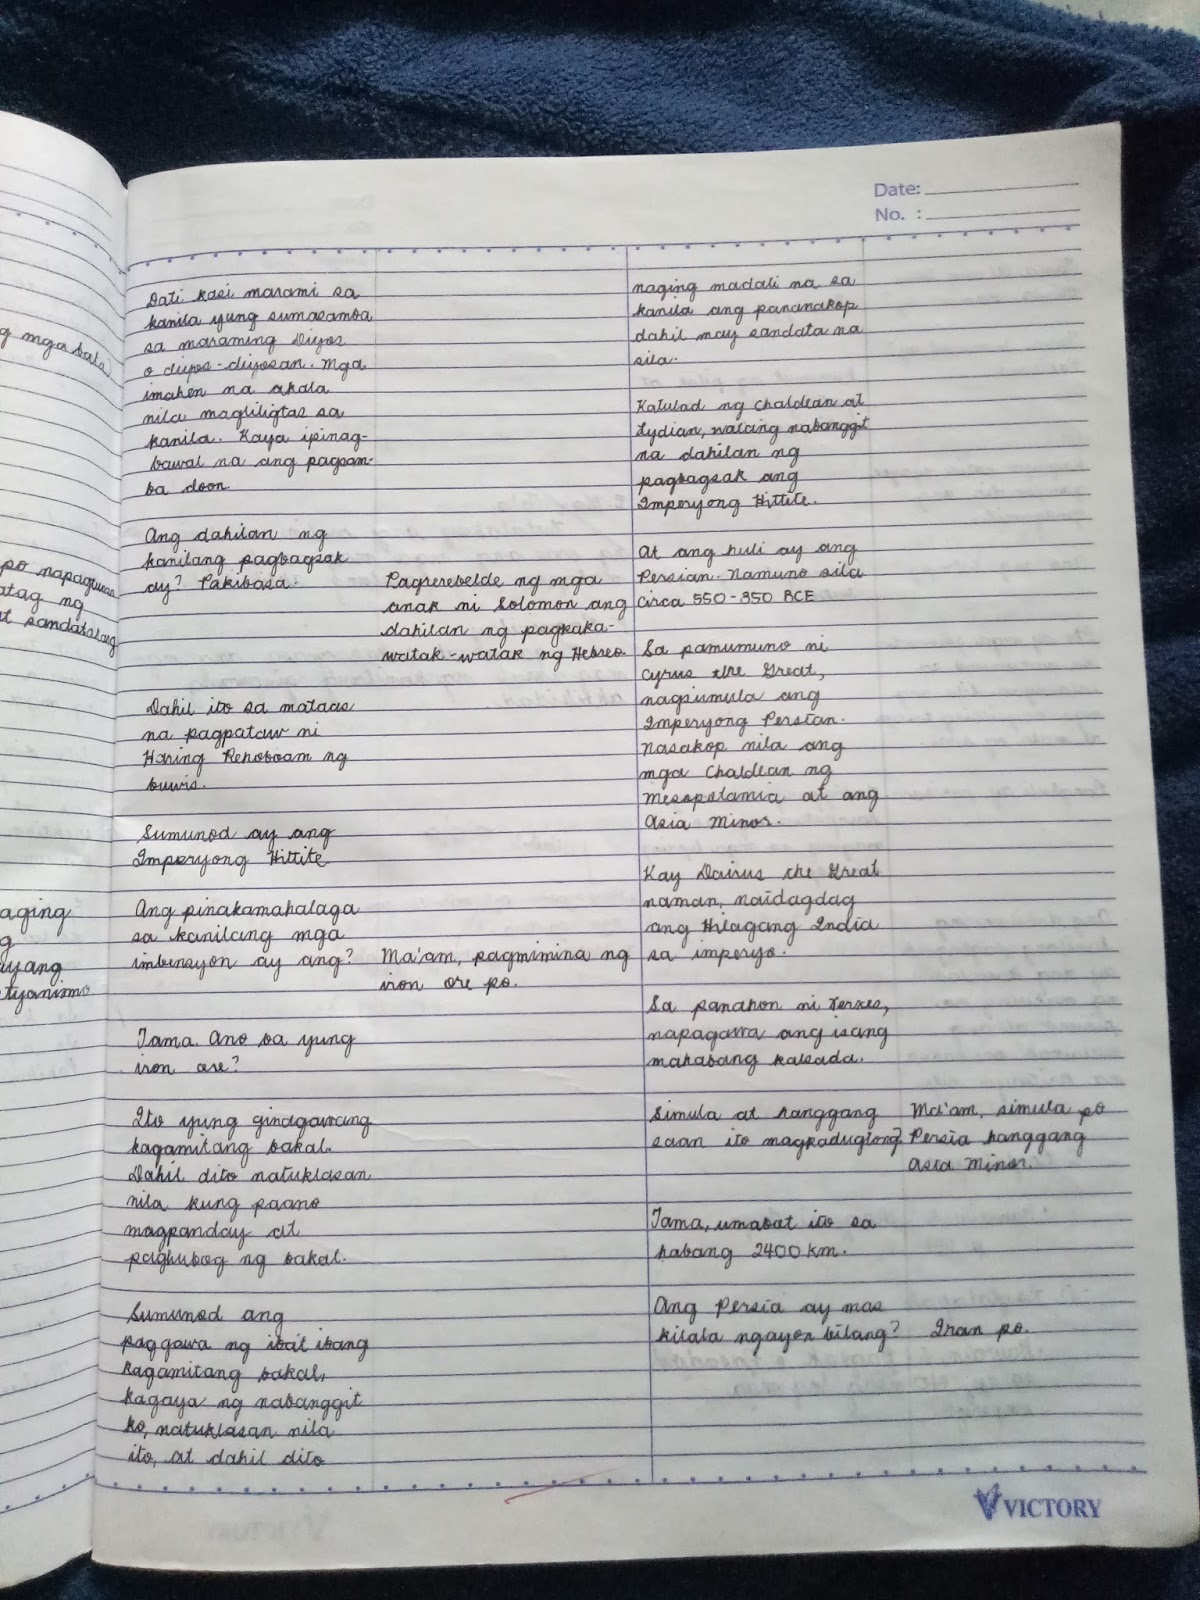 g mga batas
po napagawa
atag ng
at sandatalang
aging
g
ayang
tyanismo
Date:
No. :
Dati kasi marami sa
kanila yung sumasamba
sa maraming Diyos
o diyos-diyosan. Mga
imahen na akala
nila magliligtas sa
kanila. Kaya ipinag-
bawal na ang pagsam-
ba doon.
Ang dahilan ng
kanilang pagbagsak
ay? Pakibasa.
Pagrerebelde ng mga
anak ni Solomon ang
dahilan ng pagkaka-
watak-watak ng Hebreo.
Dahil ito sa mataas
na pagpataw ni
Haring Rehoboam ng
buwis.
Sumunod ay ang
Imperyong Hittite
Ang pinakamahalaga
sa kanilang mga
imbensyon ay ang?
Ma'am, pagmimina ng
iron ore po.
Tama. Ano ba yung
iron ore?
Ito yung ginagawang
kagamitang bakal.
Dahil dito natuklasan
nila kung paano
magpanday at
paghubog ng bakal.
Sumunod ang
paggawa ng ibat ibang
kagamitang bakal,
kagaya ng nabanggit
ko, natuklasan nila
ito, at dahil dito
naging madali na sa
kanila ang pananakop
dahil may sandata na
sila.
Katulad ng Chaldean at
Lydian, walang nabanggit
na dahilan ng
pagbagsak ang
Imperyong Hittite.
At ang huli ay ang
Persian. Namuno sila
circa 550-350 BCE
Sa pamumuno ni
Cyrus the Great,
nagsimula ang
Imperyong Persian.
Nasakop nila ang
mga Chaldean ng
Mesopotamia at ang
Asia Minor.
Kay Dairus the Great
naman, naidagdag
ang Hilagang India
sa imperyo.
Sa panahon ni Xerxes,
napagawa ang isang
mahabang kalsada.
Simula at hanggang
saan ito magkadugtong?
Ma'am, simula po
Persia hanggang
Asia Minor.
Tama, umabot ito sa
habang 2400 km.
Ang Persia ay mas
kilala ngayon bilang?
Iran po.
VICTORY